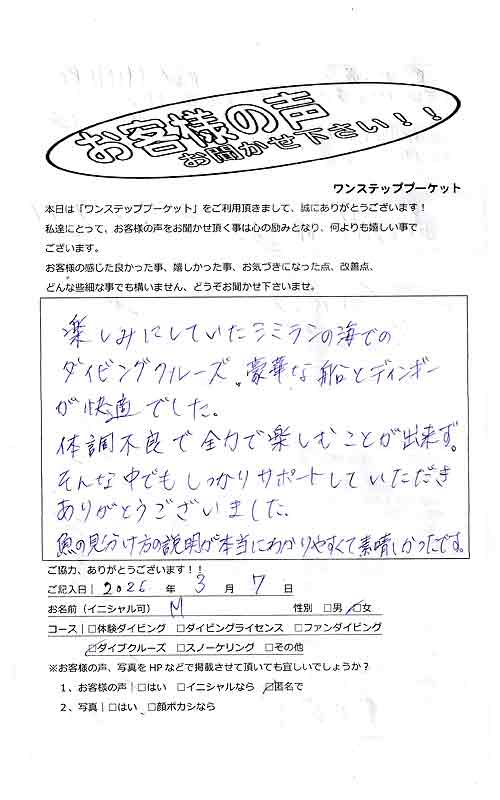 お客様の声
お聞かせ下さい！！
ワンステッププーケット
本日は「ワンステッププーケット」をご利用頂きまして、誠にありがとうございます！
私達にとって、お客様の声をお聞かせ頂く事は心の励みとなり、何よりも嬉しい事で
ございます。
お客様の感じた良かった事、嬉しかった事、お気づきになった点、改善点、
どんな些細な事でも構いません、どうぞお聞かせ下さいませ。
楽しみにしていたシミランの海での
ダイビングクルーズ。豪華な船とディンギー
が快適でした。
体調不良で全力で楽しむことが出来ず。
そんな中でもしっかりサポートしていただき
ありがとうございました。
魚の見分け方の説明が本当にわかりやすくて素晴しかったです。
ご協力、ありがとうございます！！
ご記入日｜ 年 3 月 7 日
お名前（イニシャル可） M 性別 □男 □女
コース｜□体験ダイビング □ダイビングライセンス □ファンダイビング
□ダイブクルーズ □スノーケリング □その他
※お客様の声、写真をHPなどで掲載させて頂いても宜しいでしょうか？
1、お客様の声｜□はい □イニシャルなら □匿名で
2、写真｜□はい、□顔ボカシなら